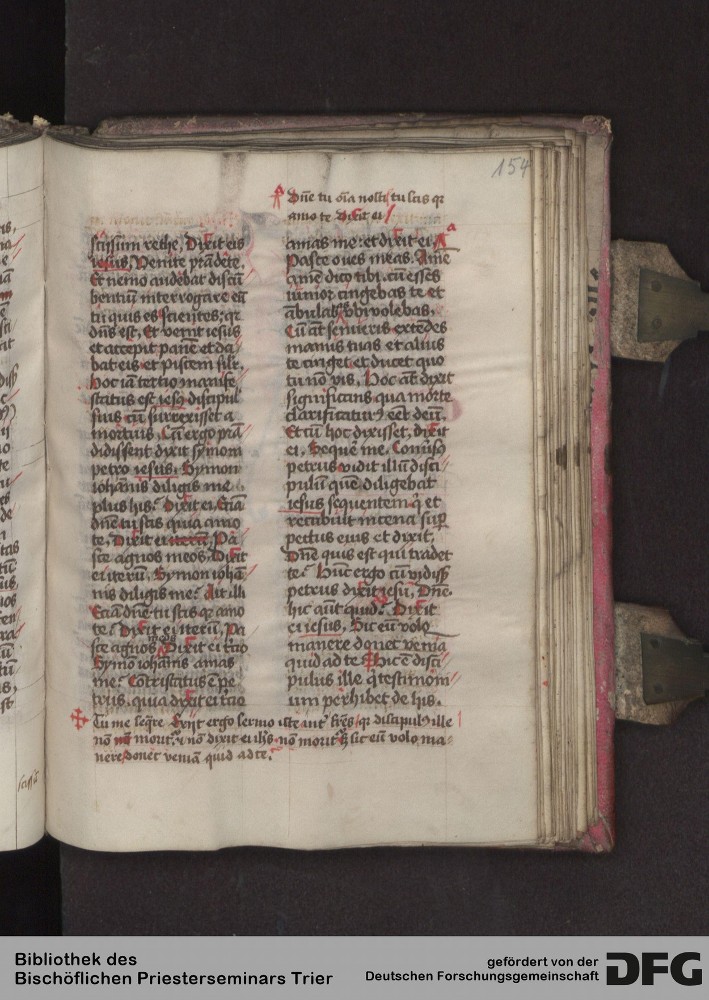 154
Dn̄e tu oīa nosti tu scis qꝛ
amo te Dixit ei
scissum rethe, Dixit eis
iesus, Venite prādete.
Et nemo audebat discū
bentiū interrogare eū
tu quis es scientes, qꝛ
dn̄s est, Et venit iesus
et accepit panē et da
bat eis et piscem silꝛ.
hoc iā tertio manife
status est iesꝯ discipul
suis cū surrexisset a
mortuis, Cū ergo prā
didissent dixit symoni
petro iesus, Symon
iohānis diligis me
plus his? Dixit ei, Etiā
dn̄e tu scis quia amo
te, Dixit ei iterū, Pa
sce agnos meos, Dixit
ei iterū, Symon iohā
nis diligis me? Ait illi
Etiā dn̄e tu scis qꝛ amo
te? Dixit ei iterū, Pa
sce agnos meos Dixit ei t̄cio
Symō iohānis amas
me? Cōtristatus ē pe
trus, quia dixit ei t̄cio
amas me: et dixit ei
Pasce oues meas. Amē
amē dico tibi. cū esses
iunior cingebas te et
ābulabas vbi volebas.
Cū aūt senueris extēdes
manus tuas et alius
te cinget et ducet quo
tu nō vis, Hoc aūt dixit
significans qua morte
clarificaturꝯ eēt deū.
Et cū hoc dixisset, dixit
ei, Seque me, Conuersꝯ
petrus vidit illū disci
pulū quē diligebat
iesus sequentem q̇ et
recubuit in cena suꝑ
pectus eius et dixit,
Dn̄e quis est qui tradet
te? Hūc ergo cū vidisꝫ
petrus dixit iesū, Dn̄e
hic aūt quid? Dixit
ei iesus, Sic eū volo
manere donec venia
quid ad te Hic ē disci
pulus ille q̇ testimoni
um perhibet de his.
Tu me seq̄re Exiit ergo sermo iste int̄ fr̄es qꝛ discipulꝯ ille
nō moritꝛ, et nō dixit ei ih̄s nō moritꝛ sꝫ sic eū volo ma
nere donec veniā quid ad te.
Bibliothek des
Bischöflichen Priesterseminars Trier
gefördert von der
Deutschen Forschungsgemeinschaft
DFG